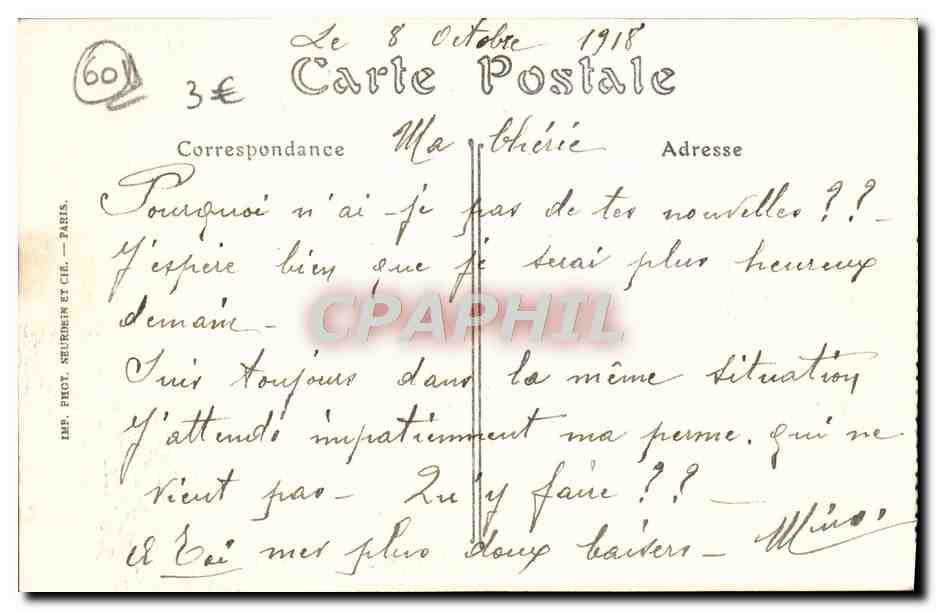 Le 8 Octobre 1918
60
3€
Carte Postale
Correspondance
Ma Chérie
Adresse
Pourquoi n'ai-je pas de tes nouvelles ?? -
J'espère bien que je serai plus heureux
demain -
Suis toujours dans la même situation
J'attends impatiemment ma perme. qui ne
vient pas - Qu'y faire ?? -
à Toi mes plus doux baisers -
IMP. PHOT. NEURDEIN ET CIE. — PARIS.
CPAPHIL